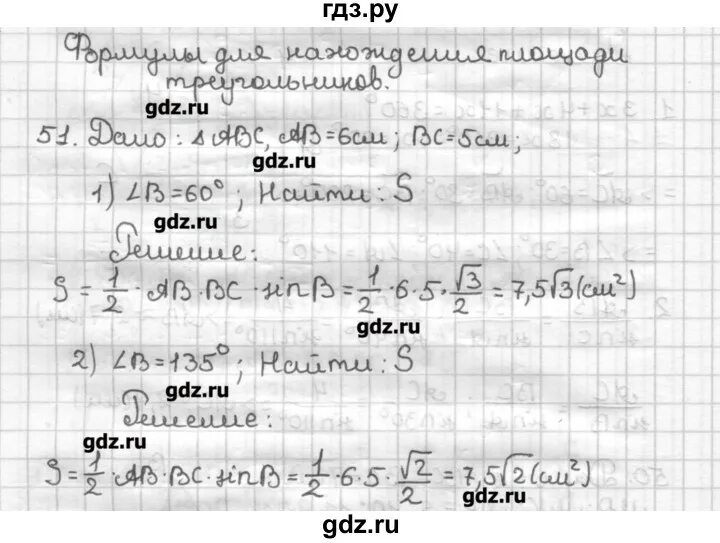 гдз.ру
Формулы для нахождения площади
треугольников.
gdz.ru
51. Дано: Δ ABC, AB=6см; BC=5см;
gdz.ru
1) ∠B=60°; Найти: S
gdz.ru
Решение:
S = 1/2 · AB·BC · sin B = 1/2 · 6·5· √3/2 = 7,5√3 (см²)
gdz.ru
2) ∠B=135°; Найти: S
gdz.ru
Решение:
gdz.ru
S = 1/2 · AB·BC·sin B = 1/2 · 6·5· √2/2 = 7,5√2 (см²)
gdz.ru
gdz.ru